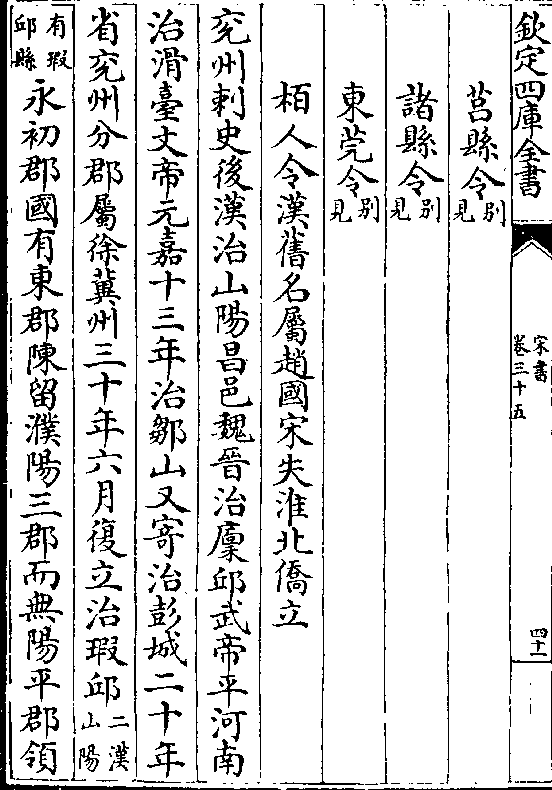 欽定四庫全書
宋書
卷三十五
四十一
莒縣令別見
諸縣令別見
東莞令別見
栢人令漢舊名屬趙國宋失淮北僑立
兖州刺史後漢治山陽昌邑魏晉治廩邱武帝平河南
治滑臺文帝元嘉十三年治鄒山又寄治彭城二十年
省兖州分郡屬徐冀州三十年六月復立治瑕邱二漢山陽
有瑕邱縣永初郡國有東郡陳留濮陽三郡而無陽平郡領